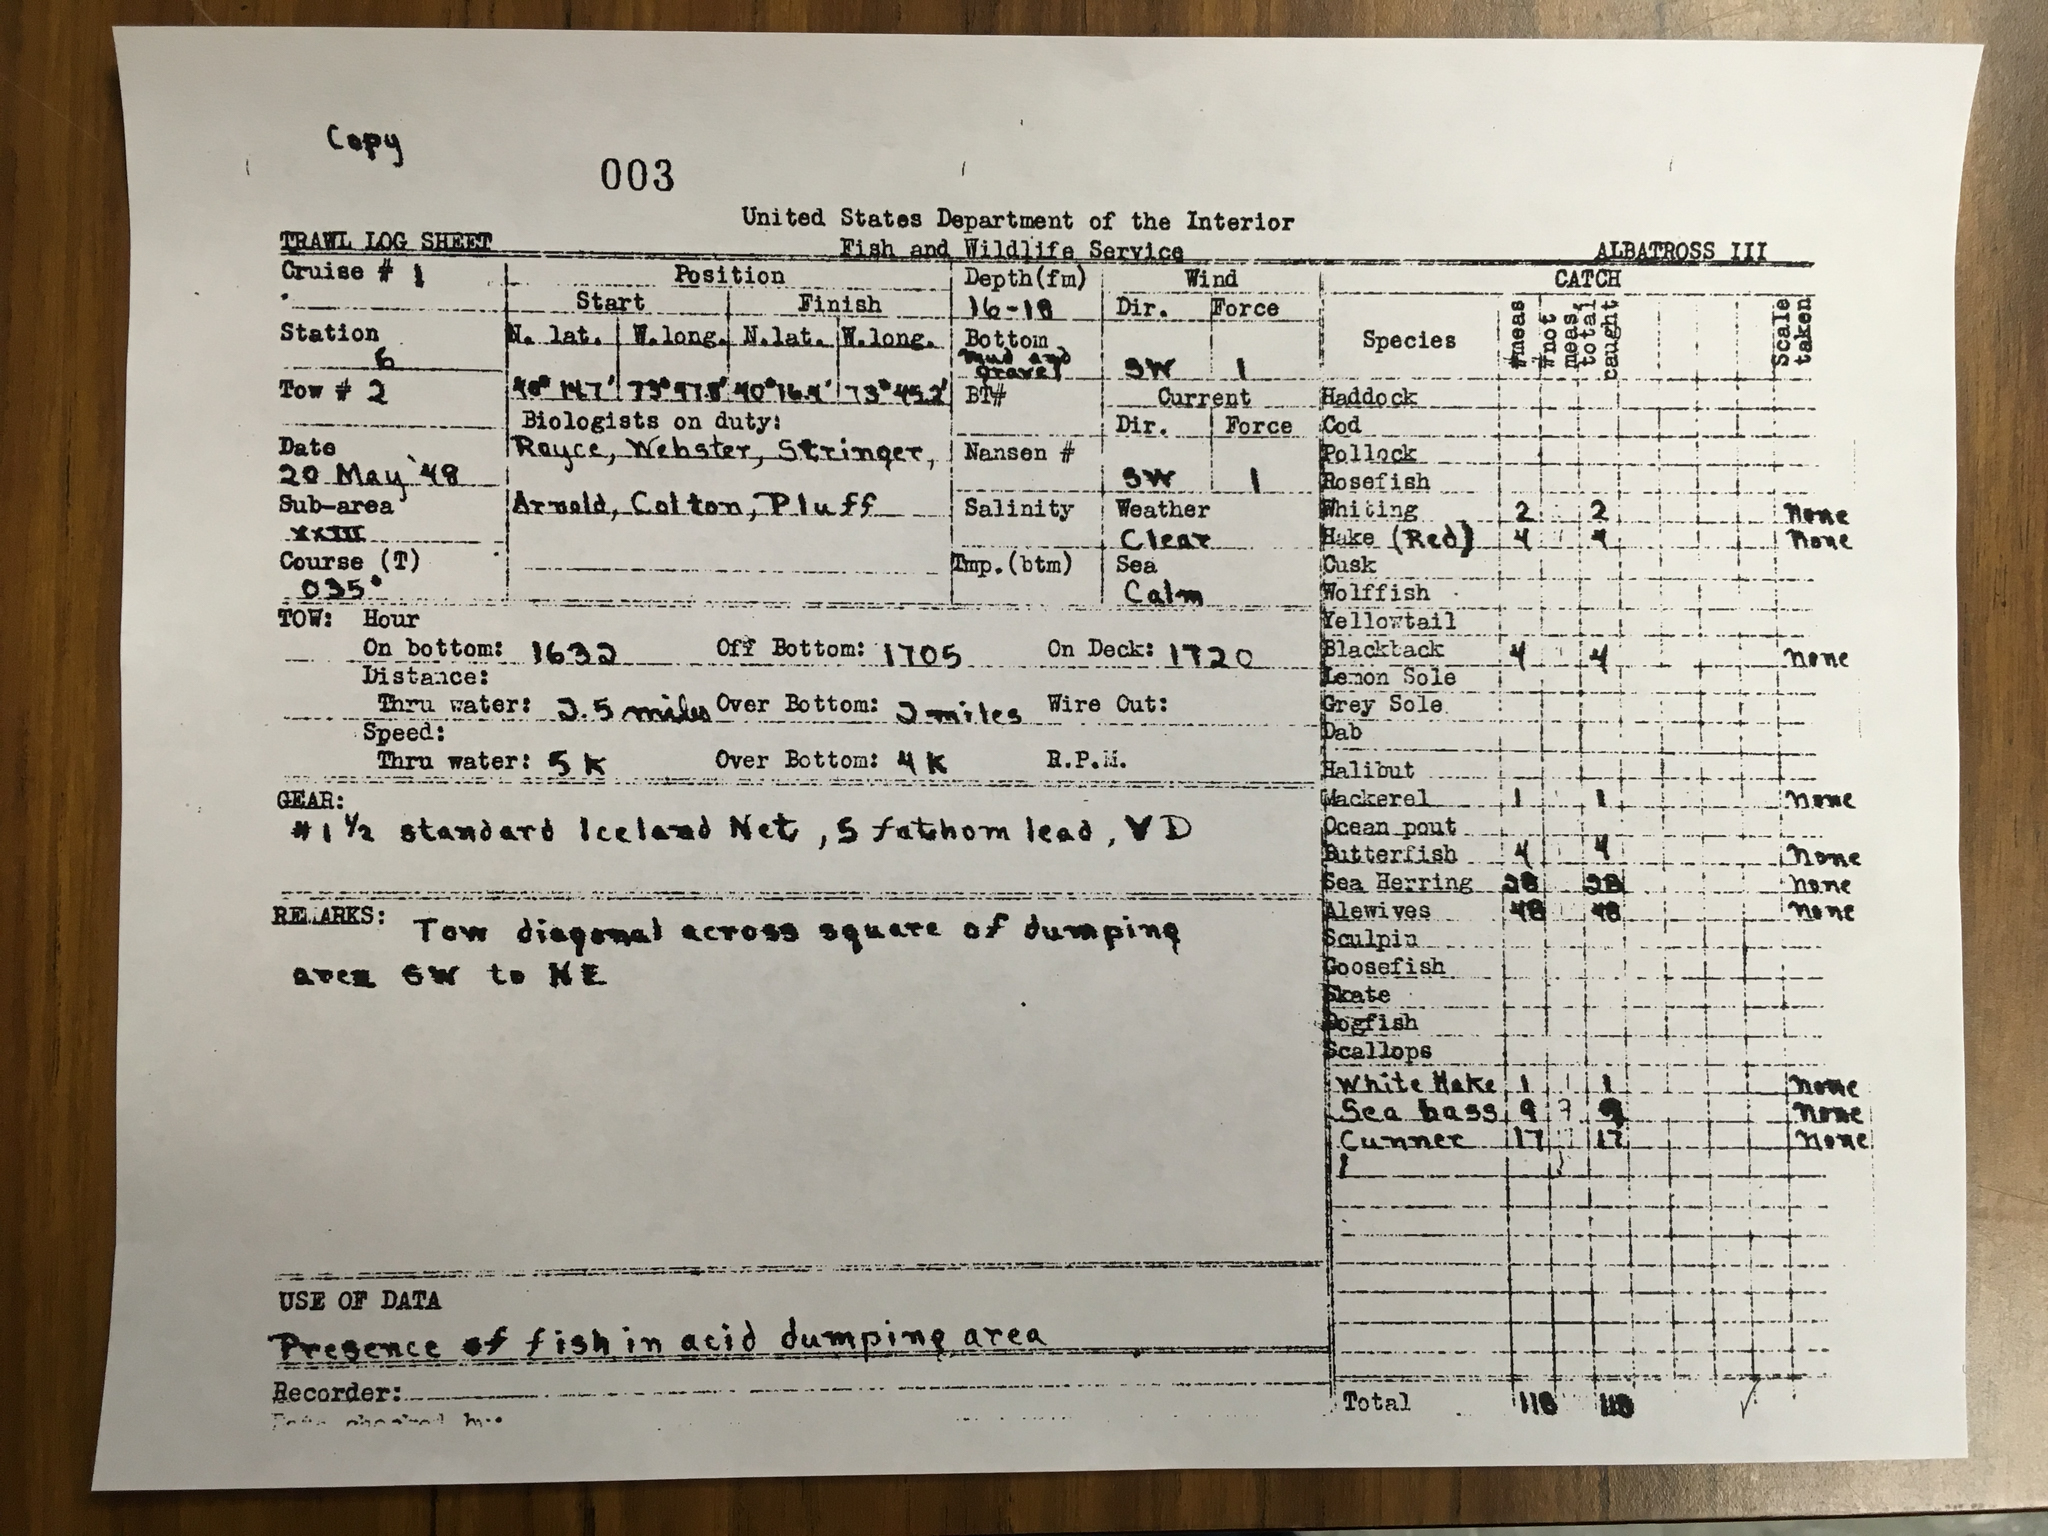 Copy
003
United States Department of the Interior
TRAWL LOG SHEET Fish and Wildlife Service ALBATROSS III
Cruise # 1 Position Depth(fm) Wind CATCH
Start Finish 16-18 Dir. Force
Station N. lat. W.long. N.lat. W.long. Bottom Species #meas #not meas. total caught Scale taken
6 Mud and gravel SW 1
Tow # 2 40° 14.7' 73° 47.8' 40° 16.4' 73° 45.2' BT# Current Haddock
Biologists on duty: Dir. Force Cod
Date Royce, Webster, Stringer, Nansen # Pollock
20 May '48 SW 1 Rosefish
Sub-area Arnold, Colton, Pluff Salinity Weather Whiting 2 2 None
XXIII Clear Hake (Red) 4 4 None
Course (T) Tmp.(btm) Sea Cusk
035° Calm Wolffish
TOW: Hour Yellowtail
On bottom: 1632 Off Bottom: 1705 On Deck: 1720 Blackback 4 4 None
Distance: Lemon Sole
Thru water: 2.5 miles Over Bottom: 2 miles Wire Out: Grey Sole
Speed: Dab
Thru water: 5 K Over Bottom: 4 K R.P.M. Halibut
GEAR: Mackerel 1 1 None
#1 1/2 standard Iceland Net, 5 fathom lead, VD Ocean pout
Butterfish 4 4 None
Sea Herring 28 28 None
REMARKS: Alewives 48 48 None
Tow diagonal across square of dumping Sculpin
area SW to NE Goosefish
Skate
Dogfish
Scallops
White Hake 1 1 None
Sea bass 9 9 None
Cunner 17 17 None
USE OF DATA
Presence of fish in acid dumping area
Recorder:
Total 118 118